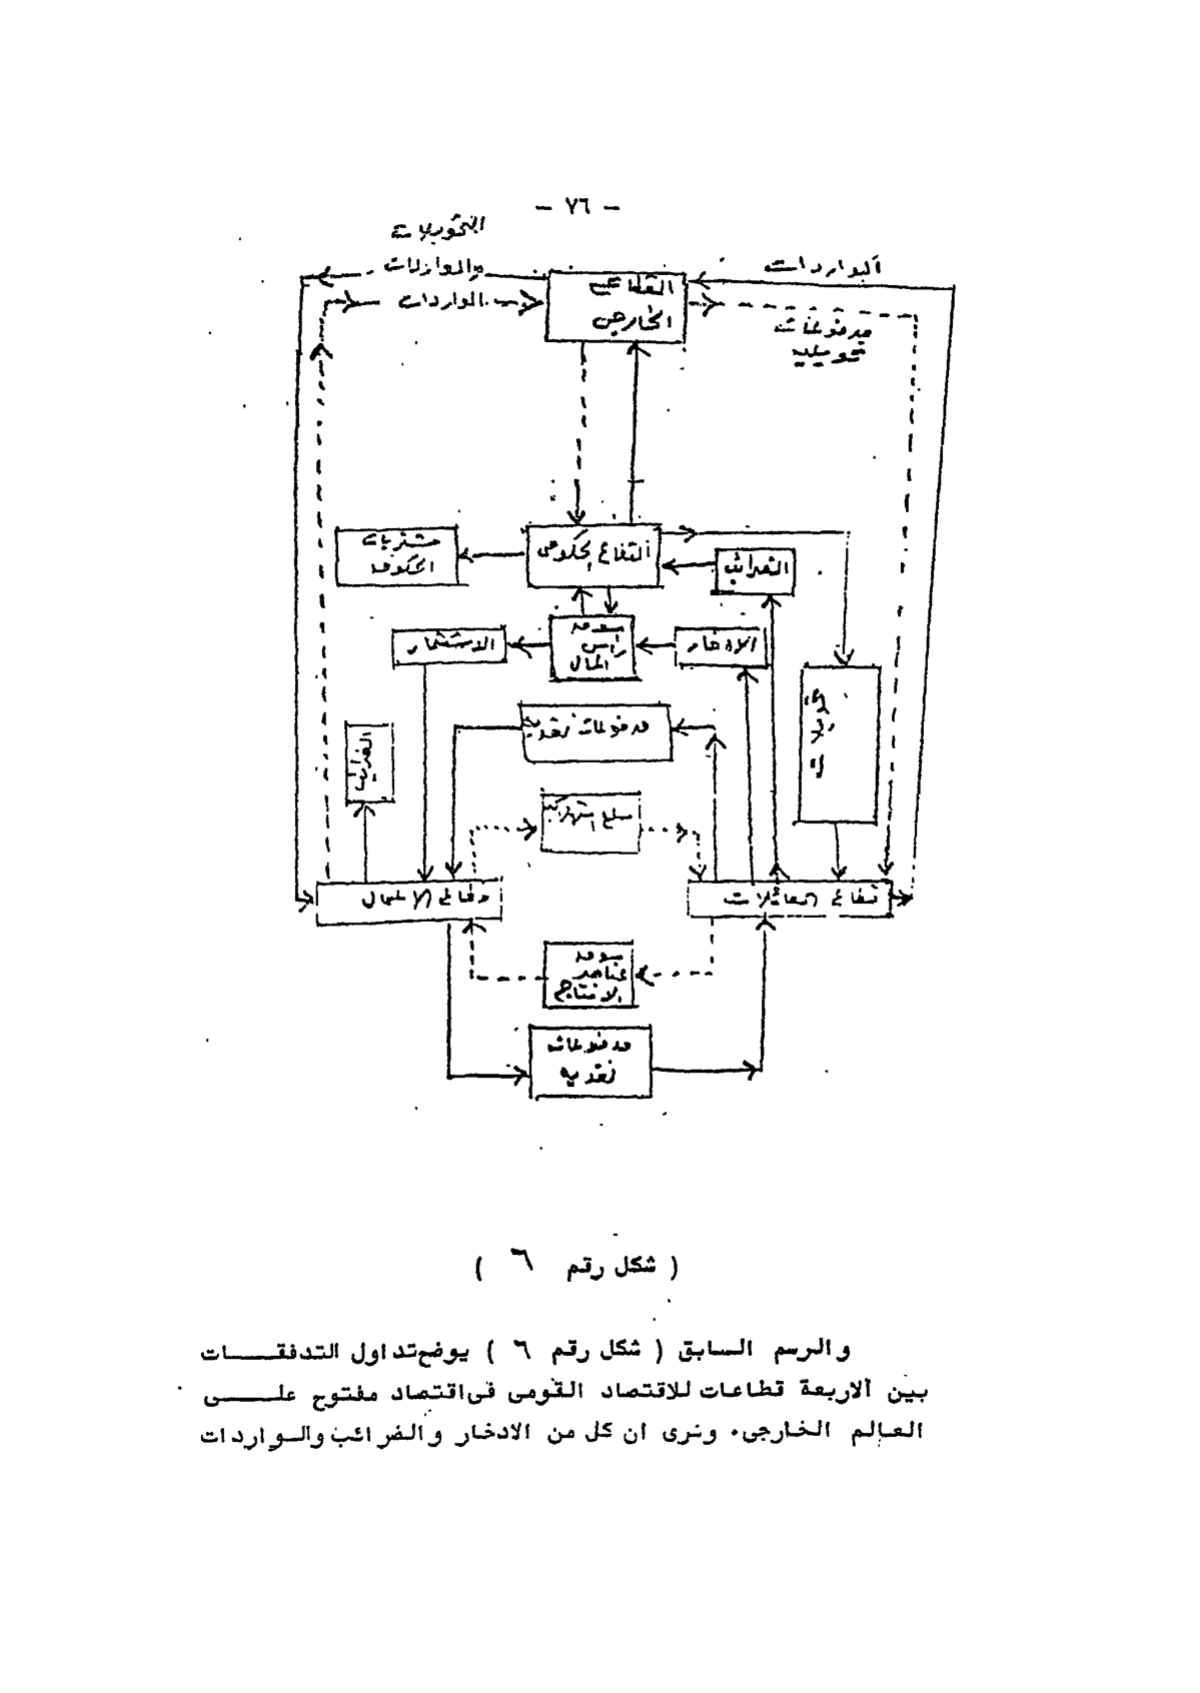 - ٧٦ -
الواردات
القطاع
الخارجى
الواردات
مدفوعات
تحويلية
مشتريات
الحكومة
القطاع الحكومى
الضرائب
الاستثمار
سوق
رأس
المال
الادخار
مدفوعات نقدية
الضرائب
سلع استهلاكية
قطاع الاعمال
قطاع العائلات
سوق
عناصر
الانتاج
مدفوعات
نقدية
( شكل رقم ٦ )
والرسم السابق ( شكل رقم ٦ ) يوضح تداول التدفقــــات
بين الاربعة قطاعات للاقتصاد القومى فى اقتصاد مفتوح علـــــى
العالم الخارجى. ونرى ان كل من الادخار والضرائب والـواردات